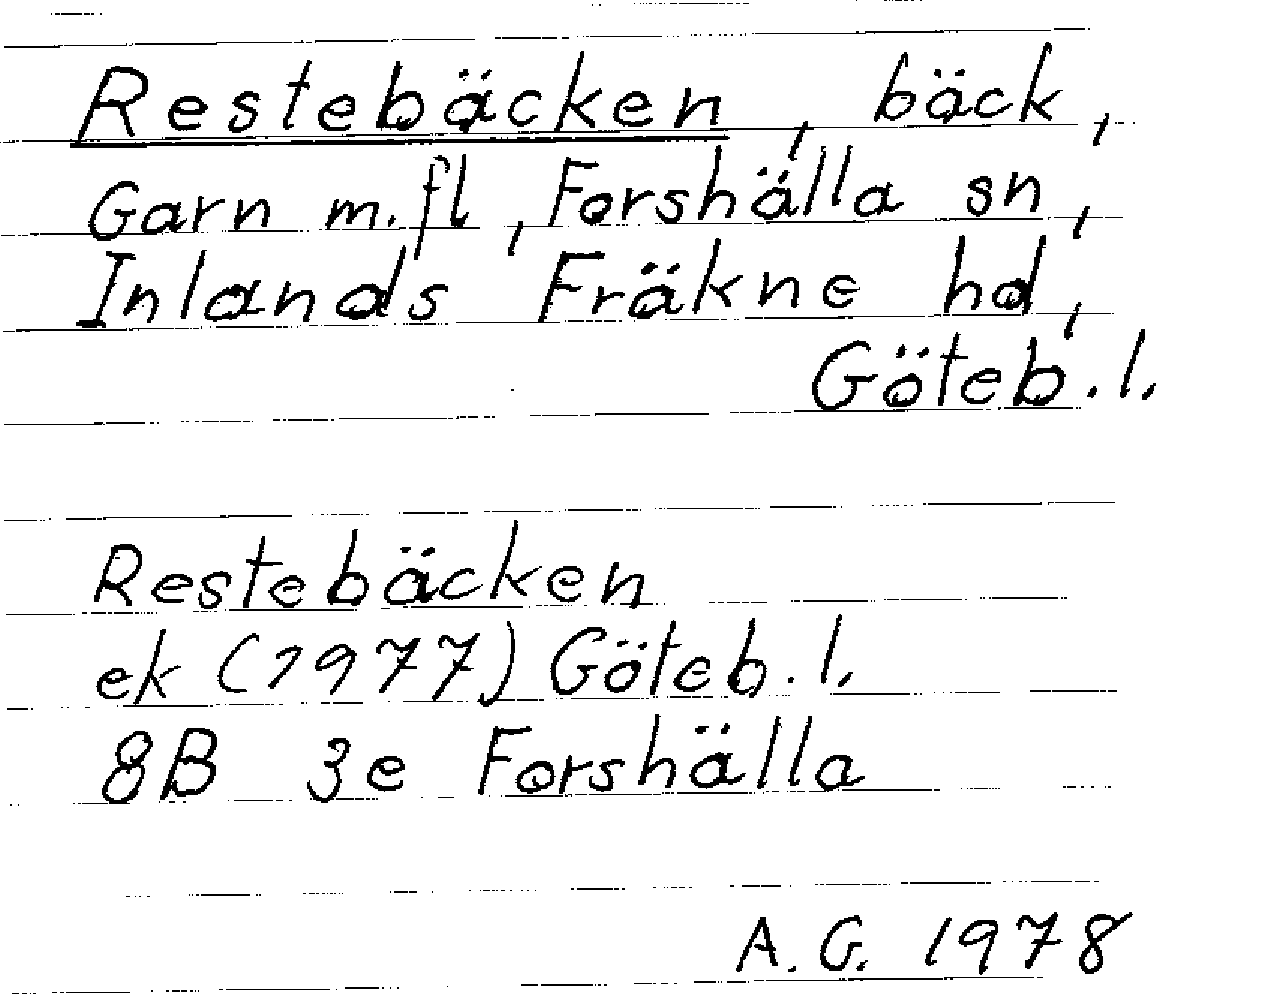 Restebäcken, bäck,
Garn m.fl, Forshälla sn,
Inlands Fräkne hd,
Göteb.l.
Restebäcken
ek (1977) Göteb.l.
8B 3e Forshälla
A.G. 1978